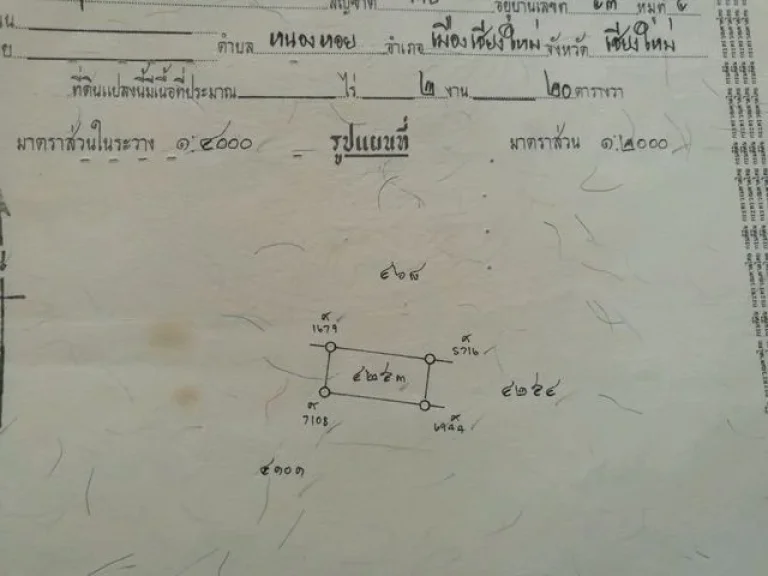 อยู่บ้านเลขที่ ๕๓ หมู่ที่ ๕
ตำบล หนองหอย อำเภอ เมืองเชียงใหม่ จังหวัด เชียงใหม่
ที่ดินแปลงนี้มีเนื้อที่ประมาณ ไร่ ๒ งาน ๒๐ ตารางวา
มาตราส่วนในระวาง ๑:๔๐๐๐ รูปแผนที่ มาตราส่วน ๑:๒๐๐๐
๔๖๘
ศ
1679
ศ
5716
๔๒๕๓
๔๒๕๔
ศ
7108
ศ
6944
๔๑๐๑